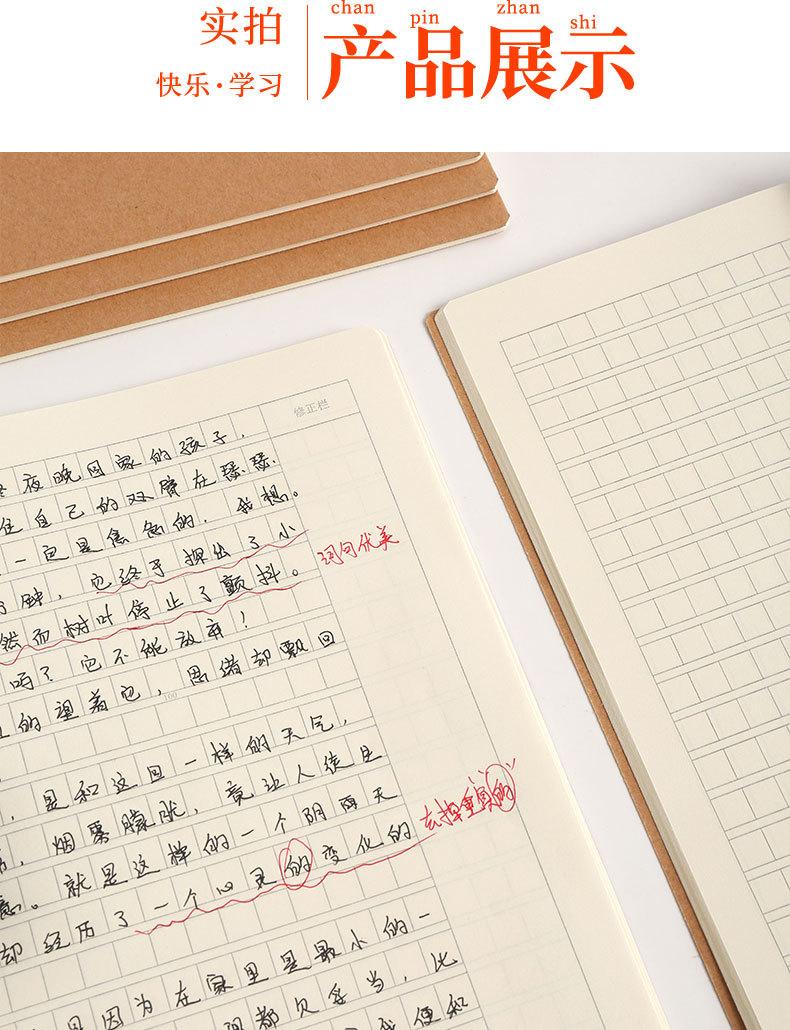 实拍
快乐·学习
chan pin zhan shi
产品展示
修正栏
夜晚回家的孩子，
住自己的双臂在瑟瑟
一包是焦急的，我想。
钟，它终于探出了小
词句优美
然而树叶停止了颤抖。
吗？它不能放弃！
的望着它，思绪却飘回
100
是和这且一样的天气，
烟雾朦胧，竟让人徒且
就是这样的一个阴雨天
去掉重复"的"
却经历了一个心灵的变化的
因为在家里是最小的一
都欠妥当，比
便和